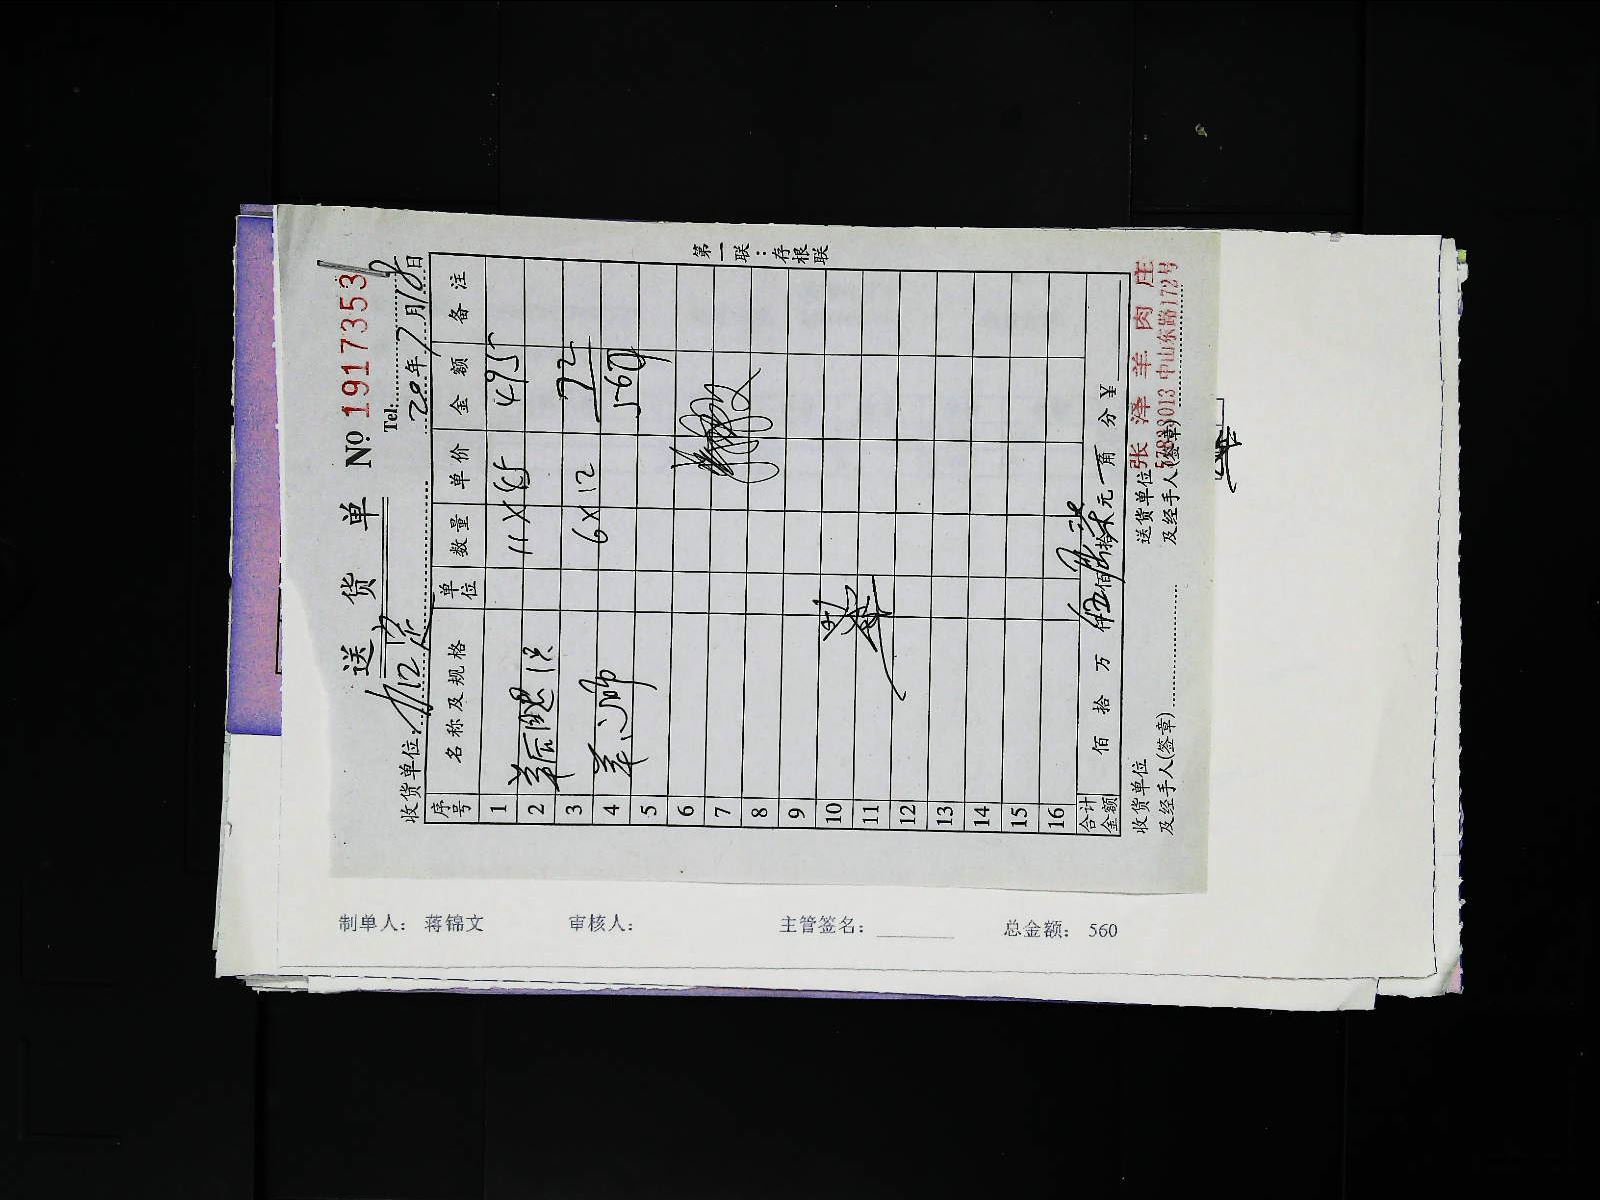 送货单 № 1917353
Tel:
收货单位: 20年7月18日
序号 名称及规格 单位 数量 单价 金额 备注
1 11×45 495
2
3 6×12 72
4 羊 560
5
6
7
8
9
10
11
12
13
14
15
16
合计金额 佰 拾 万 仟 伍佰 拾 元 角 分 ¥
收货单位及经手人(签章) 送货单位及经手人(签章)
张泽羊肉庄
57833013 中山东路172号
第一联:存根联
制单人: 蒋锦文 审核人: 主管签名: 总金额: 560